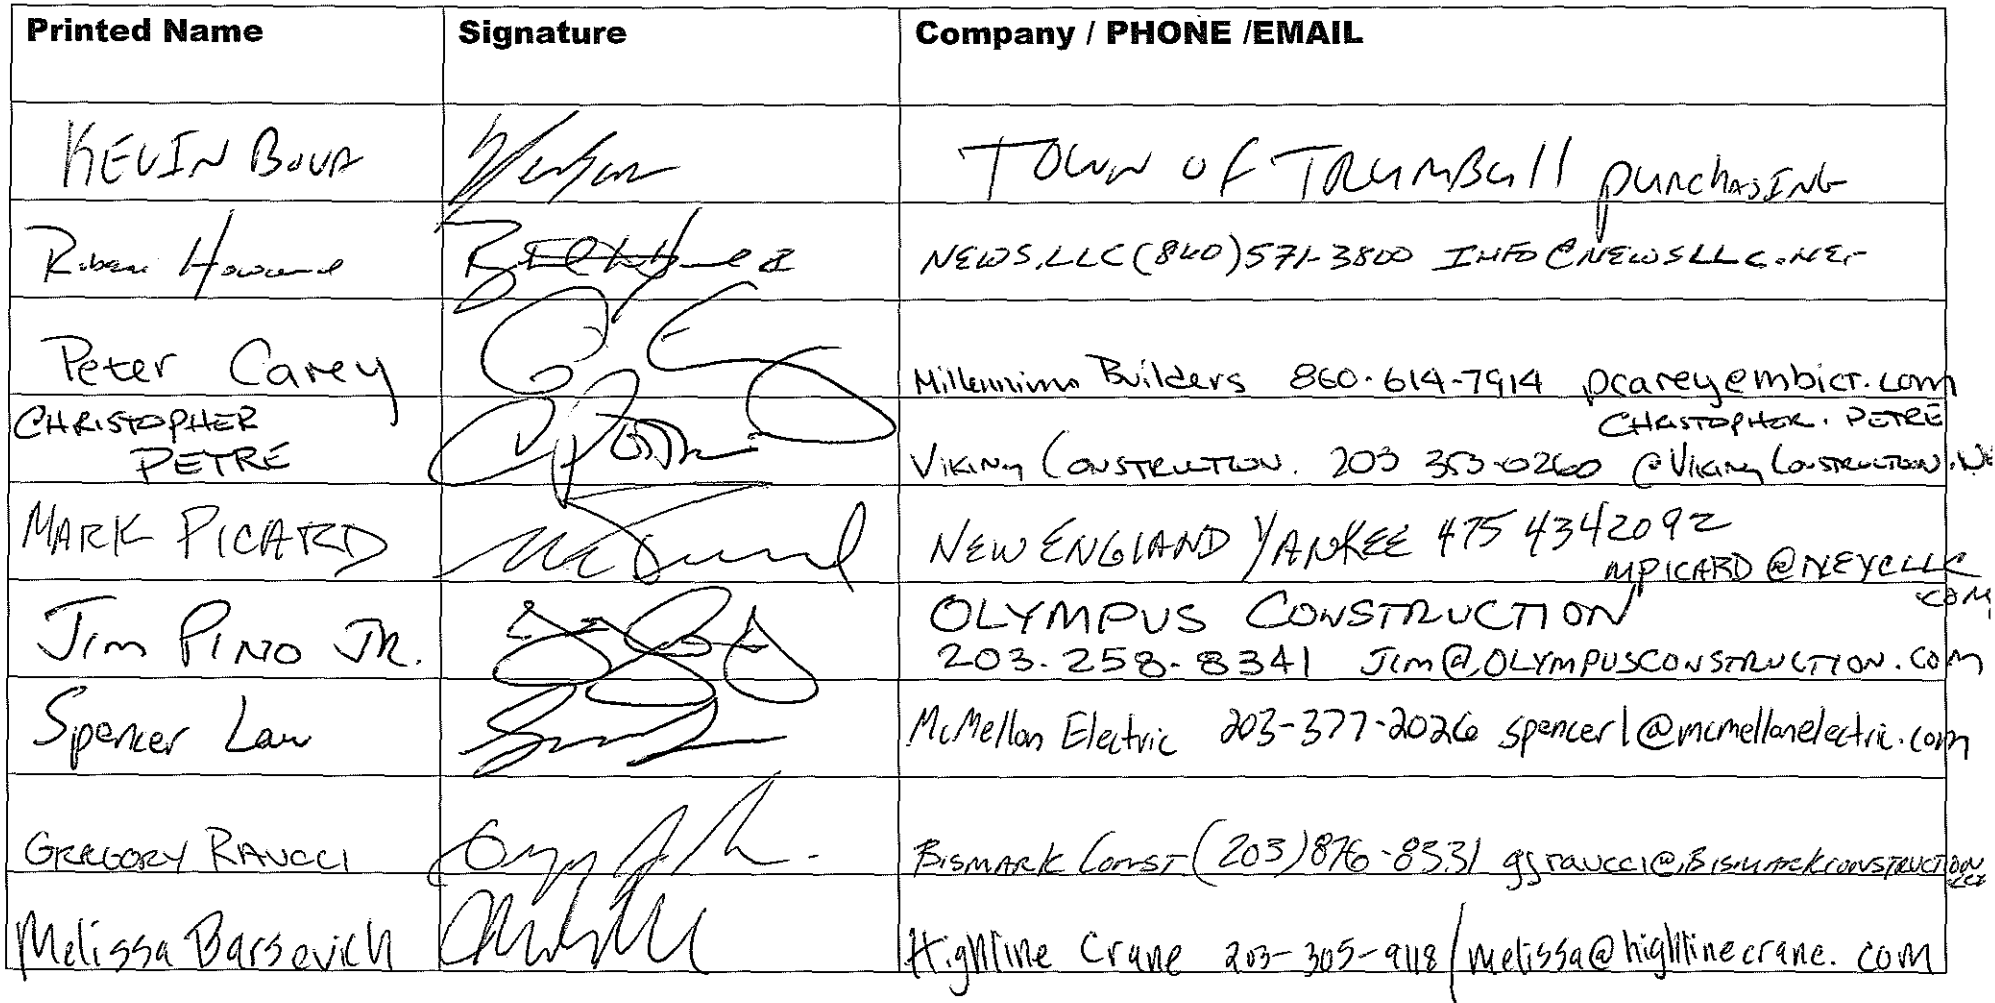 Printed Name Signature Company / PHONE /EMAIL
KEVIN BOVA TOWN OF TRUMBULL PURCHASING
NEWS, LLC (860) 571-3800 INFO@NEWSLLC.NET
Peter Carey Millennium Builders 860-614-7914 pcarey@mbict.com
CHRISTOPHER CHRISTOPHER.PETRE
PETRE VIKING CONSTRUCTION. 203 353-0260 @VIKINGCONSTRUCTION.NE
MARK PICARD NEW ENGLAND YANKEE 475 434 2092
MPICARD@NEYCLLC
.COM
JIM PINO JR. OLYMPUS CONSTRUCTION
203-258-8341 JIM@OLYMPUSCONSTRUCTION.COM
Spencer Law McMellon Electric 203-377-2026 spencerl@mcmellonelectric.com
GREGORY RAUCCI BISMARK CONST (203) 876-8331 gjraucci@BISMARKCONSTRUCTION
Melissa Barsevich Highline Crane 203-305-9118 / melissa@highlinecrane.com